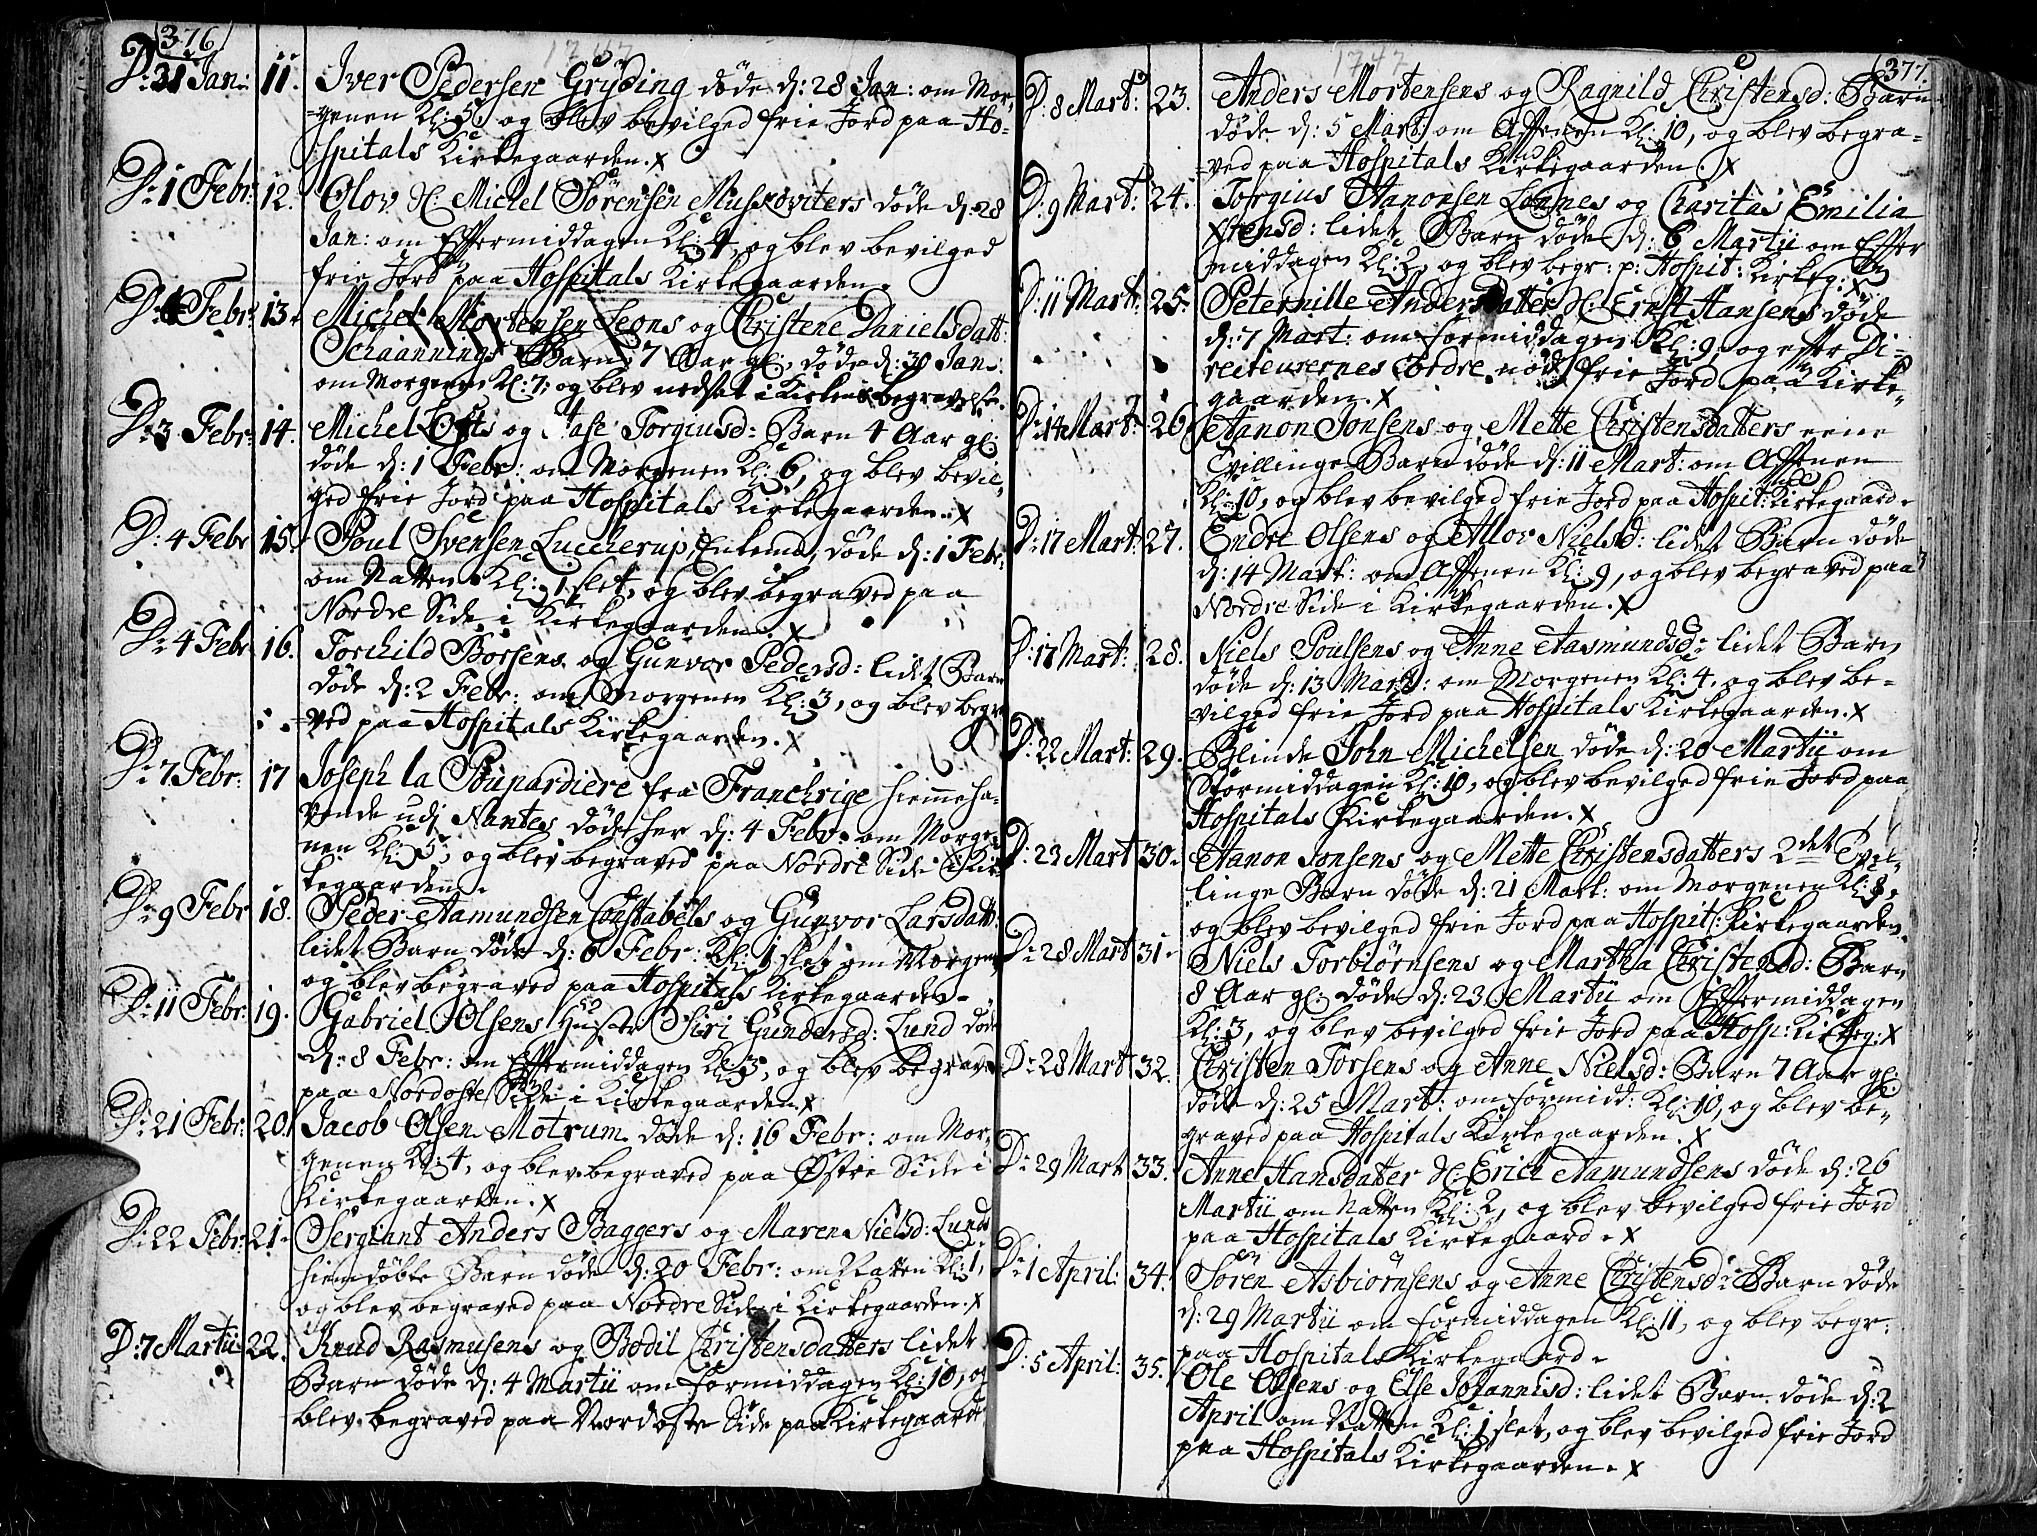 376
1747
D: 31 Jan: 11. Iver Pedersen Gryding døde d: 28 Jan: om Mor-
genen Kl: 5, og blev bevilged frie Jord paa Ho-
spitals Kirkegaarden. X
D: 1 Febr: 12. Olov H: Michel Sörensen Muskoviters døde d: 28
Jan: om Eftermiddagen Kl: 4, og blev bevilged
frie Jord paa Hospitals Kirkegaarden.
D: Febr: 13. Michel Mortensen Leons og Christene Danielsdatt:
Schaannings Barn 7 Aar gl: døde d: 30 Jan:
om Morgenen Kl: 7, og blev nedsat i Kirkens begravelse.
D: 3 Febr: 14. Michel og Aase Torgiusd: Barn 4 Aar gl:
døde d: 1 Febr: om Morgenen Kl: 6, og blev bevil-
ged frie Jord paa Hospitals Kirkegaarden. X
D: 4 Febr 15. Poul Svensen Luccherup, Enkemd, døde d: 1 Febr:
om Natten Kl: 1 slet, og blev begraved paa
Nordre Side i Kirkegaarden. X
D: 4 Febr 16. Torchild Börsens og Gunvor Pedersd: lidet Barn
døde d: 2 Febr: om Morgenen Kl: 3, og blev begra-
ved paa Hospitals Kirkegaarden. X
D: 7 Febr: 17 Joseph la Poupardiere fra Franchrige hiemmeha-
vende udj Nantes døde her d: 4 Febr: om Morge-
nen Kl: 5, og blev begraved paa Nordre Side i Kir-
kegaarden.
D: 9 Febr 18. Peder Aamundsen Constabels og Gunvor Larsdatt:
lidet Barn døde d: 6 Febr: Kl: 1 slet om Morgenen
og blev begraved paa Hospitals Kirkegaarden.
D: 11 Febr: 19. Gabriel Olsens Hustr Siri Gundersd: Lund døde
d: 8 Febr: om Eftermiddagen Kl: 3, og blev begraved
paa Nordoste Side i Kirkegaarden. X
D: 21 Febr: 20. Jacob Olsen Motrum døde d: 16 Febr: om Mor-
genen Kl: 4, og blev begraved paa Østre Side i
Kirkegaarden. X
D: 22 Febr: 21. Sergiant Anders Baggers og Maren Nielsd: Lunds
hiemdøbte Barn døde d: 20 Febr: om Natten Kl: 1,
og blev begraved paa Nordre Side i Kirkegaarden. X
D: 7 Martii 22. Knud Rasmusens og Bodil Christensdatters lidet
Barn døde d: 4 Martii om formiddagen Kl: 10, og
blev begraved paa Nordoste Side paa Kirkegaarde
377
1747
D: 8 Mart: 23. Anders Mortensens og Ragnild Christensd: Barn
døde d: 5 Mart: om Aftenen Kl: 10, og blev begra-
ved paa Hospitals Kirkegaarden. X
D: 9 Mart: 24. Torgius Aanonsen Lonnes og Charitas Emilia
Xstensd: lidet Barn døde d: 6 Martii om Efter
middagen Kl: 2, og blev begr: p: Hospit: Kirkeg: X
D: 11 Mart: 25. Peternille Andersdatter H: Ernst Hansens døde
d: 7 Mart: om formiddagen Kl: 9, og efter Di-
recteurernes Ordre nød frie Jord paa Kirke-
gaarden. X
D: 14 Mart: 26. Aanon Jonsens og Mette Christensdatters eene
Tvillinge Barn døde d: 11 Mart: om Aftenen
Kl: 10, og blev bevilged frie Jord paa Hospit: Kirkegaard.
D: 17 Mart: 27. Endre Olsens og Allov Nielsd: lidet Barn døde
d: 14 Mart: om Aftenen Kl: 9, og blev begraved paa
Nordre Side i Kirkegaarden. X
D: 17 Mart: 28. Niels Poulsens og Anne Aasmundsd: lidet Barn
døde d: 13 Mart: om Morgenen Kl: 4, og blev be-
vilged frie Jord paa Hospitals Kirkegaarden. X
D: 22 Mart: 29. Blinde John Michelsen døde d: 20 Martii om
formiddagen Kl: 10, og blev bevilged frie Jord paa
Hospitals Kirkegaarden. X
D: 23 Mart 30. Aanon Jonsens og Mette Christensdatters 2det Tvil-
linge Barn døde d: 21 Mart: om Morgenen Kl: 8,
og blev bevilged frie Jord paa Hospit: Kirkegaarden.
D: 28 Mart 31. Niels Torbiörnsens og Martha Christensd: Barn
8 Aar gl: døde d: 23 Martii om Eftermiddagen
Kl: 3, og blev bevilged frie Jord paa Hosp: Kirkeg: X
D: 28 Mart 32. Christen Torsens og Anne Nielsd: Barn 7 Aar gl:
døde d: 25 Mart: om formidd: Kl: 10, og blev be-
graved paa Hospitals Kirkegaarden. X
D: 29 Mart 33. Anne Hansdatter H: Erich Aamundsens døde d: 26
Martii om Natten Kl: 2, og blev bevilged frie Jord
paa Hospitals Kirkegaard. X
D: 1 April: 34. Sören Asbiörnsens og Anne Christensd: Barn døde
d: 29 Martii om formiddagen Kl: 11, og blev begr:
paa Hospitals Kirkegaard.
D: 5 April: 35. Ole Olsens og Else Johannisd: lidet Barn døde d: 2
April om Natten Kl: 1 slet, og blev bevilged frie Jord
paa Hospitals Kirkegaarden. X